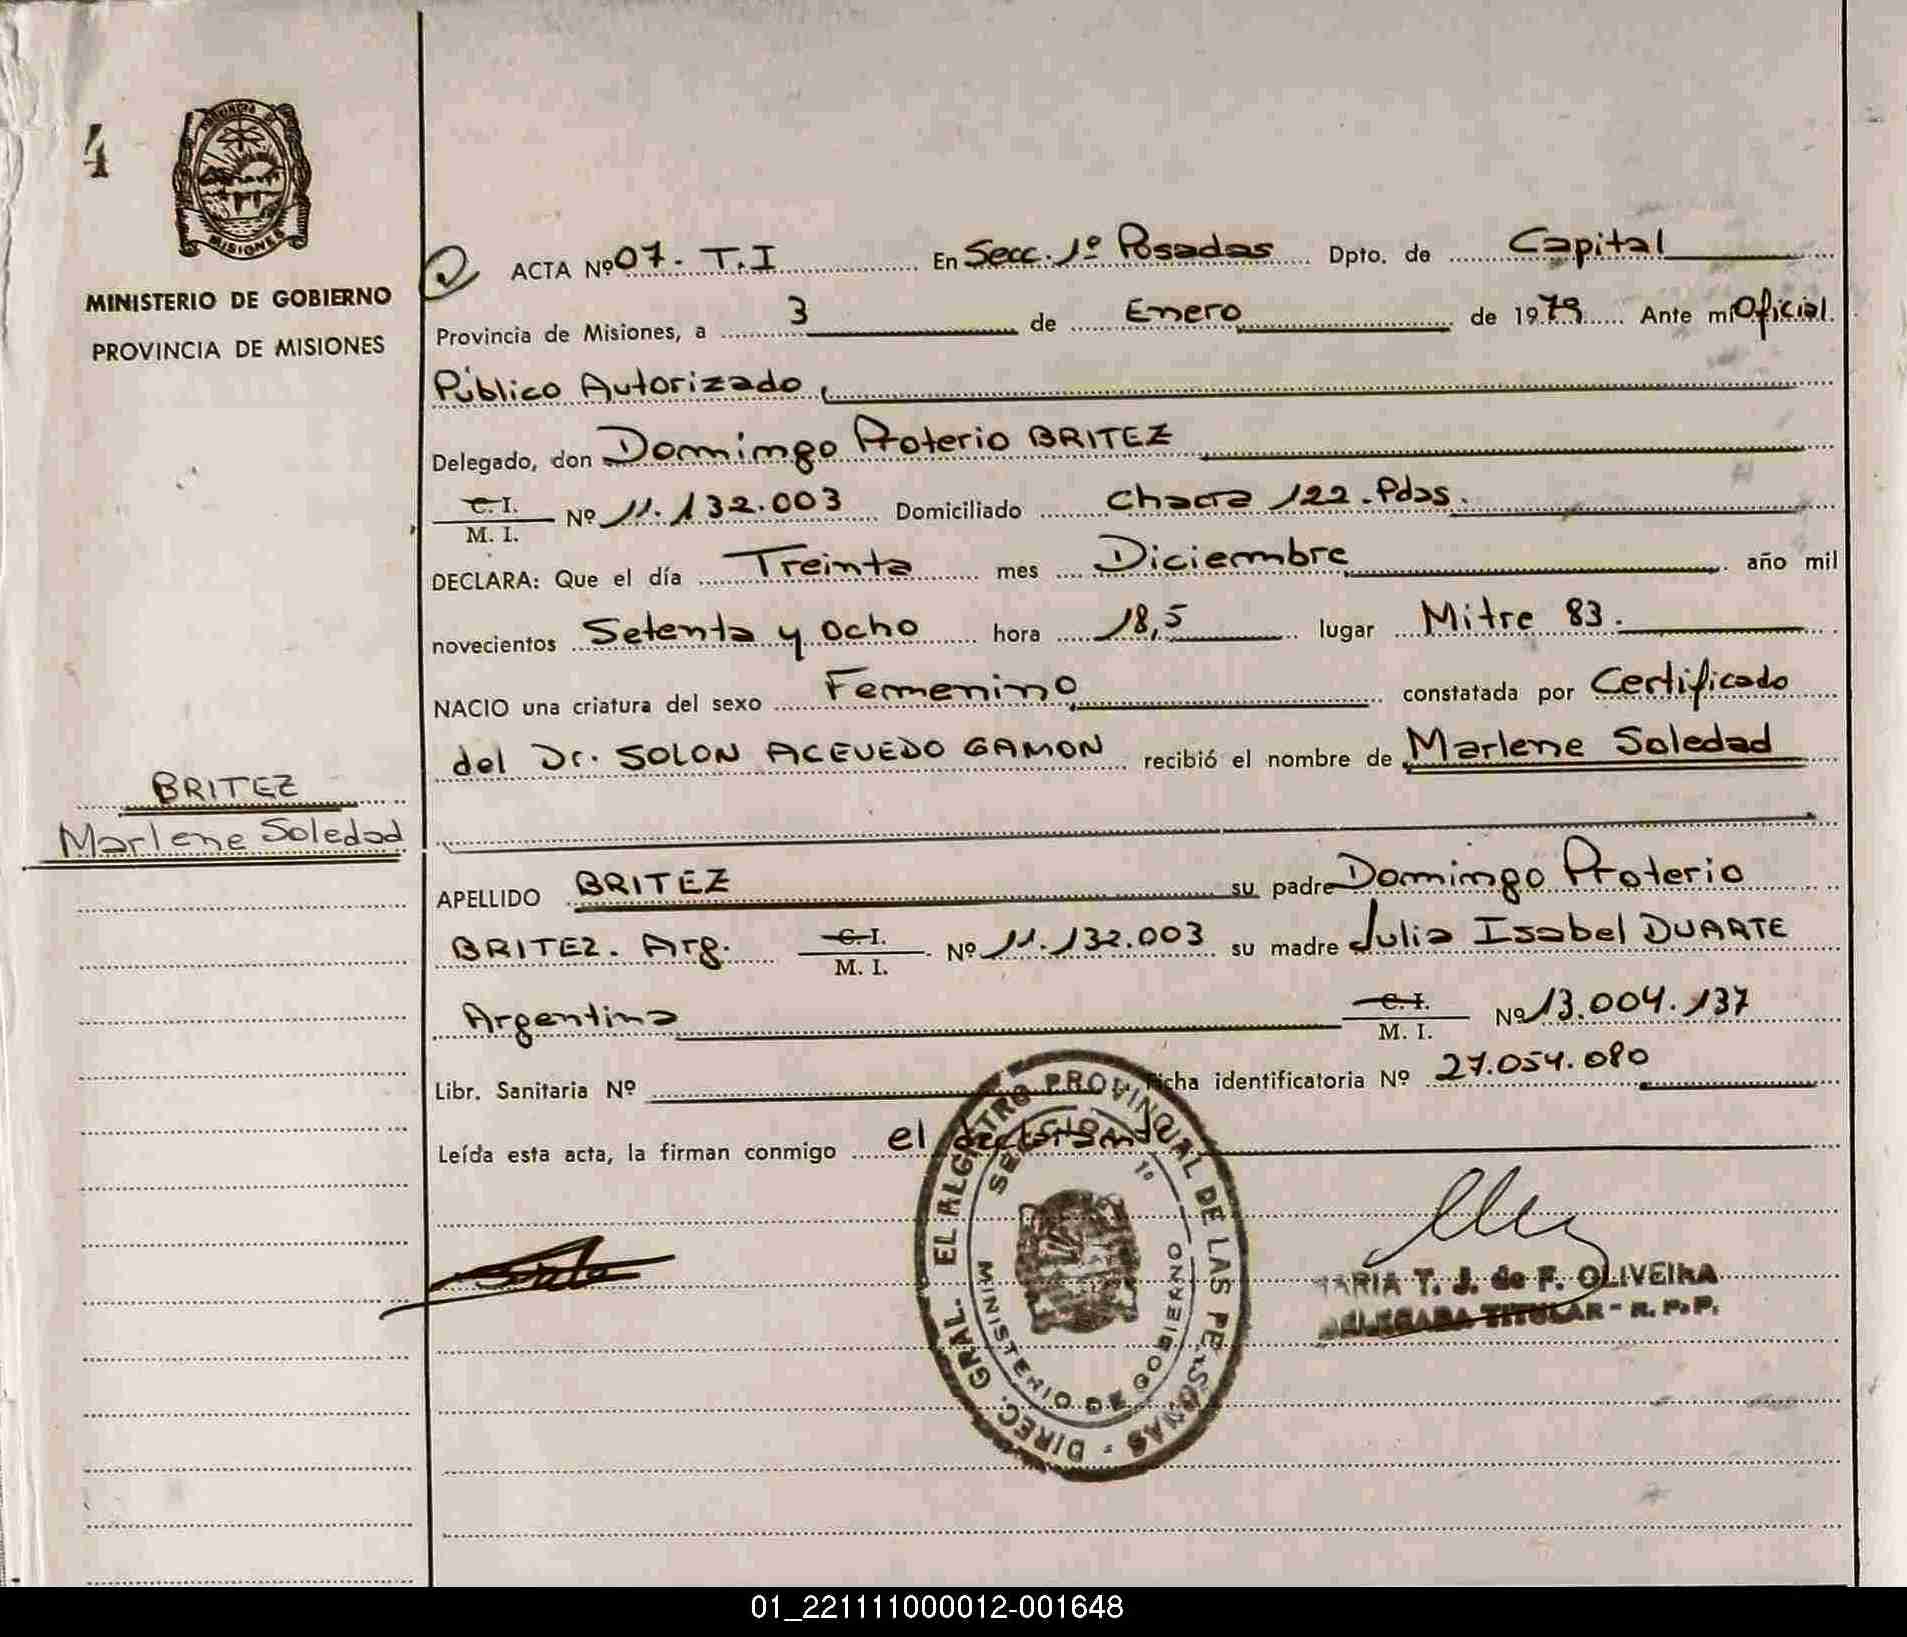 4
PROVINCIA DE
MISIONES
MINISTERIO DE GOBIERNO
PROVINCIA DE MISIONES
BRITEZ
Marlene Soledad
ACTA Nº 07. T.I En Secc. 1º Posadas Dpto. de Capital
Provincia de Misiones, a 3 de Enero de 1979 Ante mí Oficial
Público Autorizado,
Delegado, don Domingo Proterio BRITEZ
C. I.
M. I. Nº 11.132.003 Domiciliado Chacra 122. Pdas.
DECLARA: Que el día Treinta mes Diciembre año mil
novecientos Setenta y ocho hora 18,5 lugar Mitre 83.
NACIO una criatura del sexo Femenino constatada por Certificado
del Dr. SOLON ACEVEDO GAMON recibió el nombre de Marlene Soledad
APELLIDO BRITEZ su padre Domingo Proterio
BRITEZ. Arg. C. I.
M. I. Nº 11.132.003 su madre Julia Isabel DUARTE
Argentina C. I.
M. I. Nº 13.004.137
Libr. Sanitaria Nº Ficha identificatoria Nº 27.054.080
Leída esta acta, la firman conmigo el declarante
DIREC. GRAL. REGISTRO PROVINCIAL DE LAS PERSONAS
1º
MINISTERIO DE GOBIERNO
MARIA T. J. de F. OLIVEIRA
DELEGADA TITULAR - R. P. P.
01_221111000012-001648